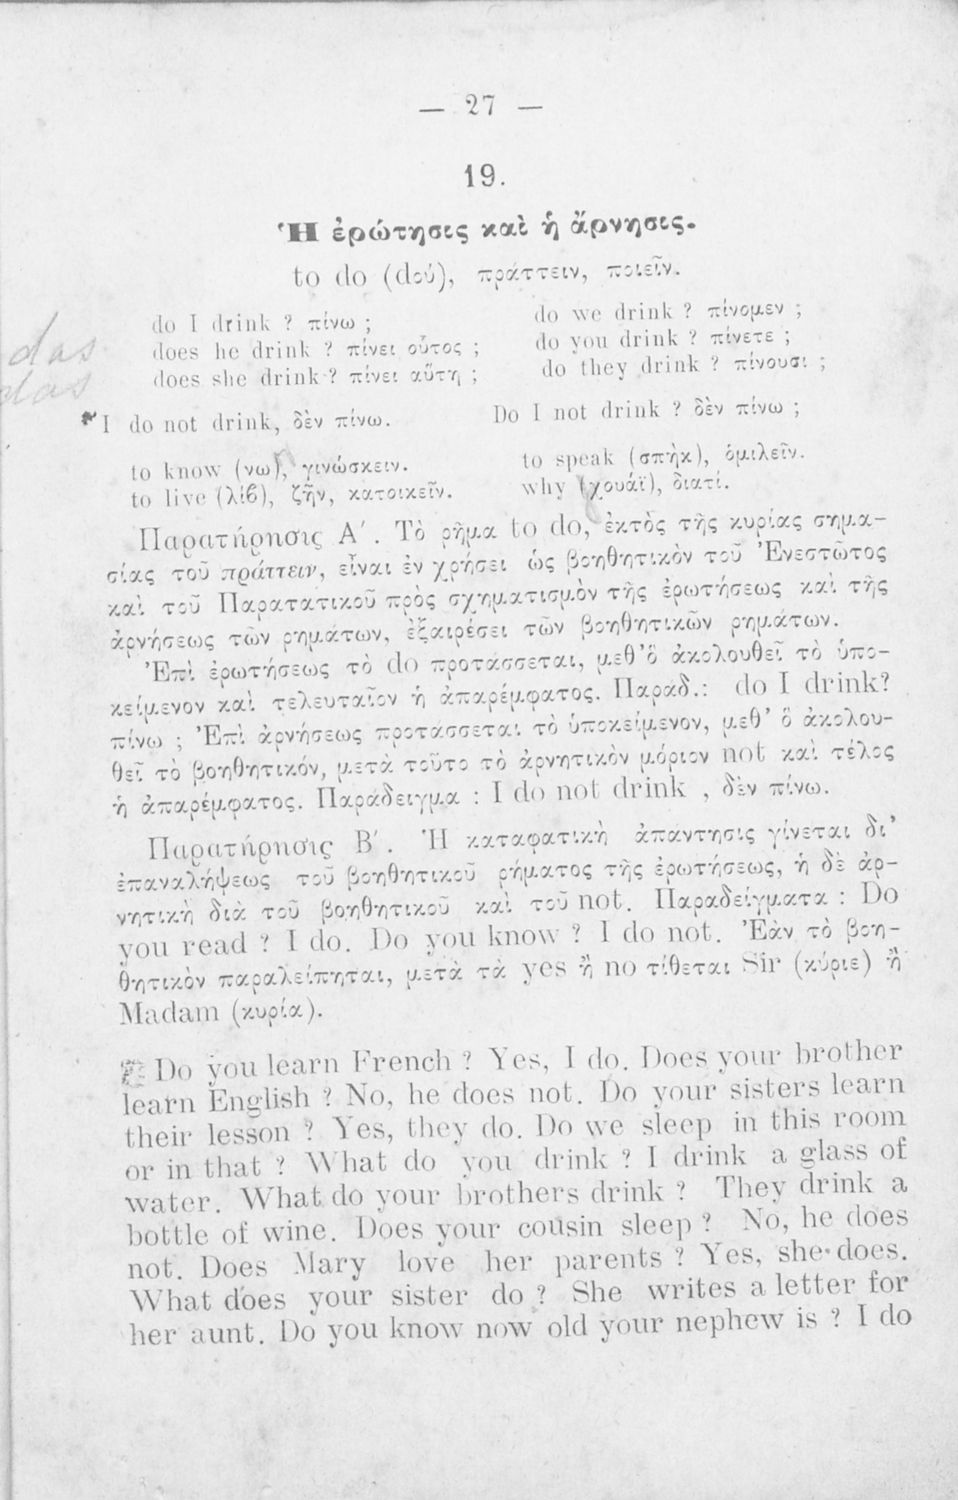 — 27 —
19.
Ἡ ἐρώτησις καὶ ἡ ἄρνησις.
to do (dού), πράττειν, ποιεῖν.
do I drink ? πίνω ;
does he drink ? πίνει οὗτος ;
does she drink ? πίνει αὕτη ;
do we drink ? πίνομεν ;
do you drink ? πίνετε ;
do they drink ? πίνουσι ;
das
das
I do not drink, δὲν πίνω.
Do I not drink ? δὲν πίνω ;
to know (νω), γινώσκειν.
to live (λίϐ), ζῆν, κατοικεῖν.
to speak (σπὴκ), ὁμιλεῖν.
why (χουάϊ), διατί.
Παρατήρησις Α΄. Τὸ ρῆμα to do, ἐκτὸς τῆς κυρίας σημα-
σίας τοῦ πράττειν, εἶναι ἐν χρήσει ὡς βοηθητικὸν τοῦ Ἐνεστῶτος
καὶ τοῦ Παρατατικοῦ πρὸς σχηματισμὸν τῆς ἐρωτήσεως καὶ τῆς
ἀρνήσεως τῶν ρημάτων, ἐξαιρέσει τῶν βοηθητικῶν ρημάτων.
Ἐπὶ ἐρωτήσεως τὸ do προτάσσεται, μεθ᾽ὃ ἀκολουθεῖ τὸ ὑπο-
κείμενον καὶ τελευταῖον ἡ ἀπαρέμφατος. Παραδ.: do I drink?
πίνω ; Ἐπὶ ἀρνήσεως προτάσσεται τὸ ὑποκείμενον, μεθ᾽ ὃ ἀκολου-
θεῖ τὸ βοηθητικόν, μετὰ τοῦτο τὸ ἀρνητικὸν μόριον not καὶ τέλος
ἡ ἀπαρέμφατος. Παράδειγμα : I do not drink , δὲν πίνω.
Παρατήρησις Β΄. Ἡ καταφατικὴ ἀπάντησις γίνεται δι᾽
ἐπαναλήψεως τοῦ βοηθητικοῦ ρήματος τῆς ἐρωτήσεως, ἡ δὲ ἀρ-
νητικὴ διὰ τοῦ βοηθητικοῦ καὶ τοῦ not. Παραδείγματα : Do
you read ? I do. Do you know ? I do not. Ἐὰν τὸ βοη-
θητικὸν παραλείπηται, μετὰ τὰ yes ἢ no τίθεται Sir (κύριε) ἢ
Madam (κυρία).
Do you learn French ? Yes, I do. Does your brother
learn English ? No, he does not. Do your sisters learn
their lesson ? Yes, they do. Do we sleep in this room
or in that ? What do you drink ? I drink a glass of
water. What do your brothers drink ? They drink a
bottle of wine. Does your cousin sleep ? No, he does
not. Does Mary love her parents ? Yes, she does.
What does your sister do ? She writes a letter for
her aunt. Do you know now old your nephew is ? I do